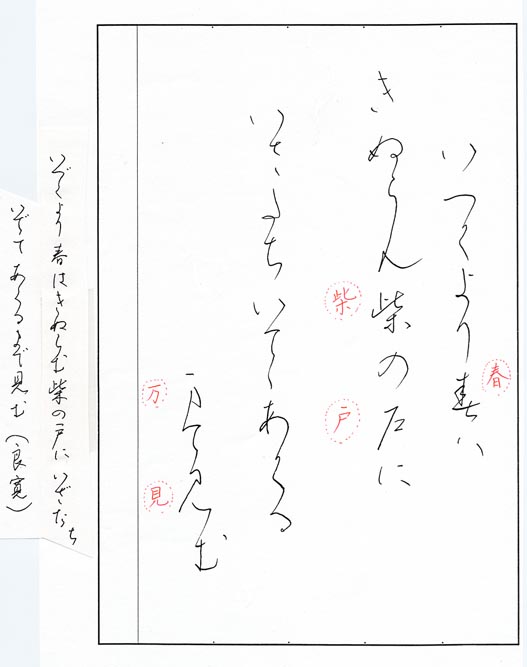 いつくより春ハ
きぬらん柴の戸に
いさたちいてゝあくる
万て見む
春
柴
戸
万
見
いづくより春はきぬらむ柴の戸にいざたち
いでてあくるまで見む（良寛）